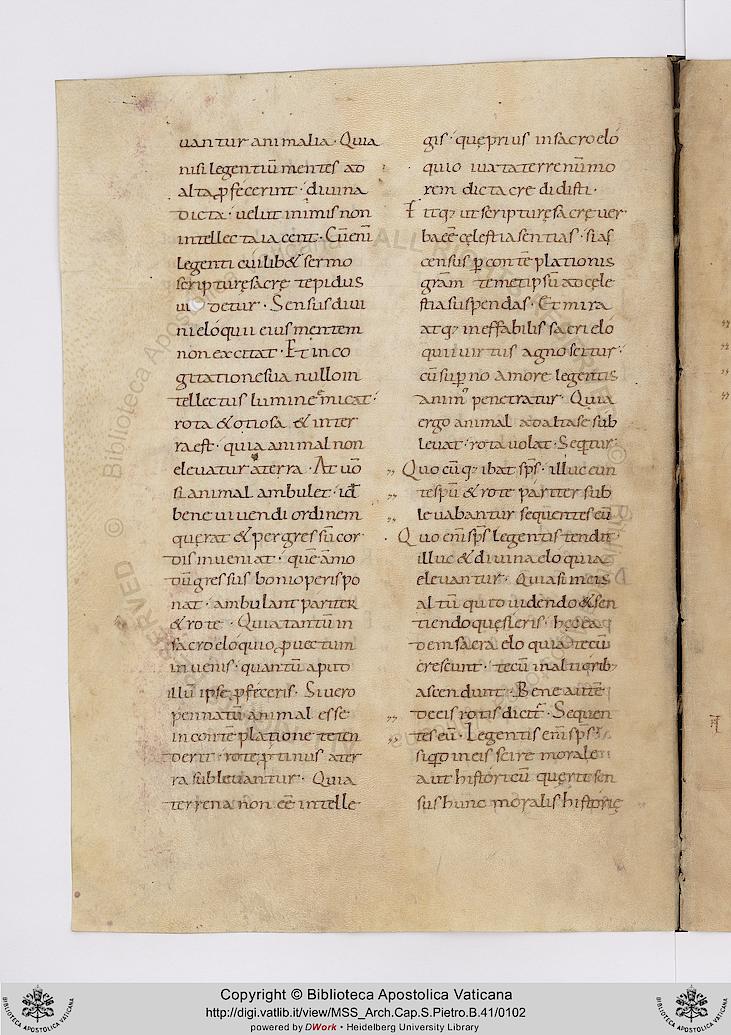 uantur animalia · Quia
nisi legentiū mentes ad
alta ꝓfecerint · diuina
dicta · uelut inimis non
intellecta iacent · Cū enī
legenti cuilib& sermo
scripturę sacrę tepidus
ui detur · Sensus diui
ni eloquii eius mentem
non excitat · Et in co
gitatione sua nullo in
tellectus lumine micat ·
rota & otiosa & in ter
ra est · quia animal non
eleuatur a terra · At uō
si animal ambulet · id ē
bene uiuendi ordinem
querat & per gressū cor
dis inueniat · quē āmo
dū gressus boni operis po
nat · ambulant pariter
& rote · Quia tantū in
sacro eloquio ꝓuectum
inuenis · quantū apud
illū ipse ꝓfeceris · Si uero
pennatū animal esse
in contēplatione teten
derit · rote ꝓtinus a ter
ra subleuantur · Quia
terrena non eē intelle
gis · quę prius in sacro elo
quio iuxta terrenū mo
rem dicta credidisti ·
Fitq; ut scripturę sacrę uer
ba eē cęlestia sentias · si ac
census ꝑ contēplationis
grām temetipsū ad cęle
stia suspendas · Et mira
atq; ineffabilis sacri elo
quii uirtus agnoscitur ·
cū suꝑno amore legentis
animꝰ penetratur · Quia
ergo animal ad alta se sub
leuat · rota uolat · Seqtur
Quocūq; ibat sps · illuc eun
te spū & rote pariter sub
leuabantur sequentes eū
Quo enī sps legentis tendit
illuc & diuina eloquia
eleuantur · Quia si in eis
altū quid uidendo & sen
tiendo quęsieris · hęc eaq
dem sacra eloquia tecū
crescunt · tecū in altiorib;
ascendunt · Bene autē
de eis rotis dicit · Sequen
tes eū · Legentis enī sps
si qd in eis scire morale
aut historicū querit sen
sus hunc moralis historię